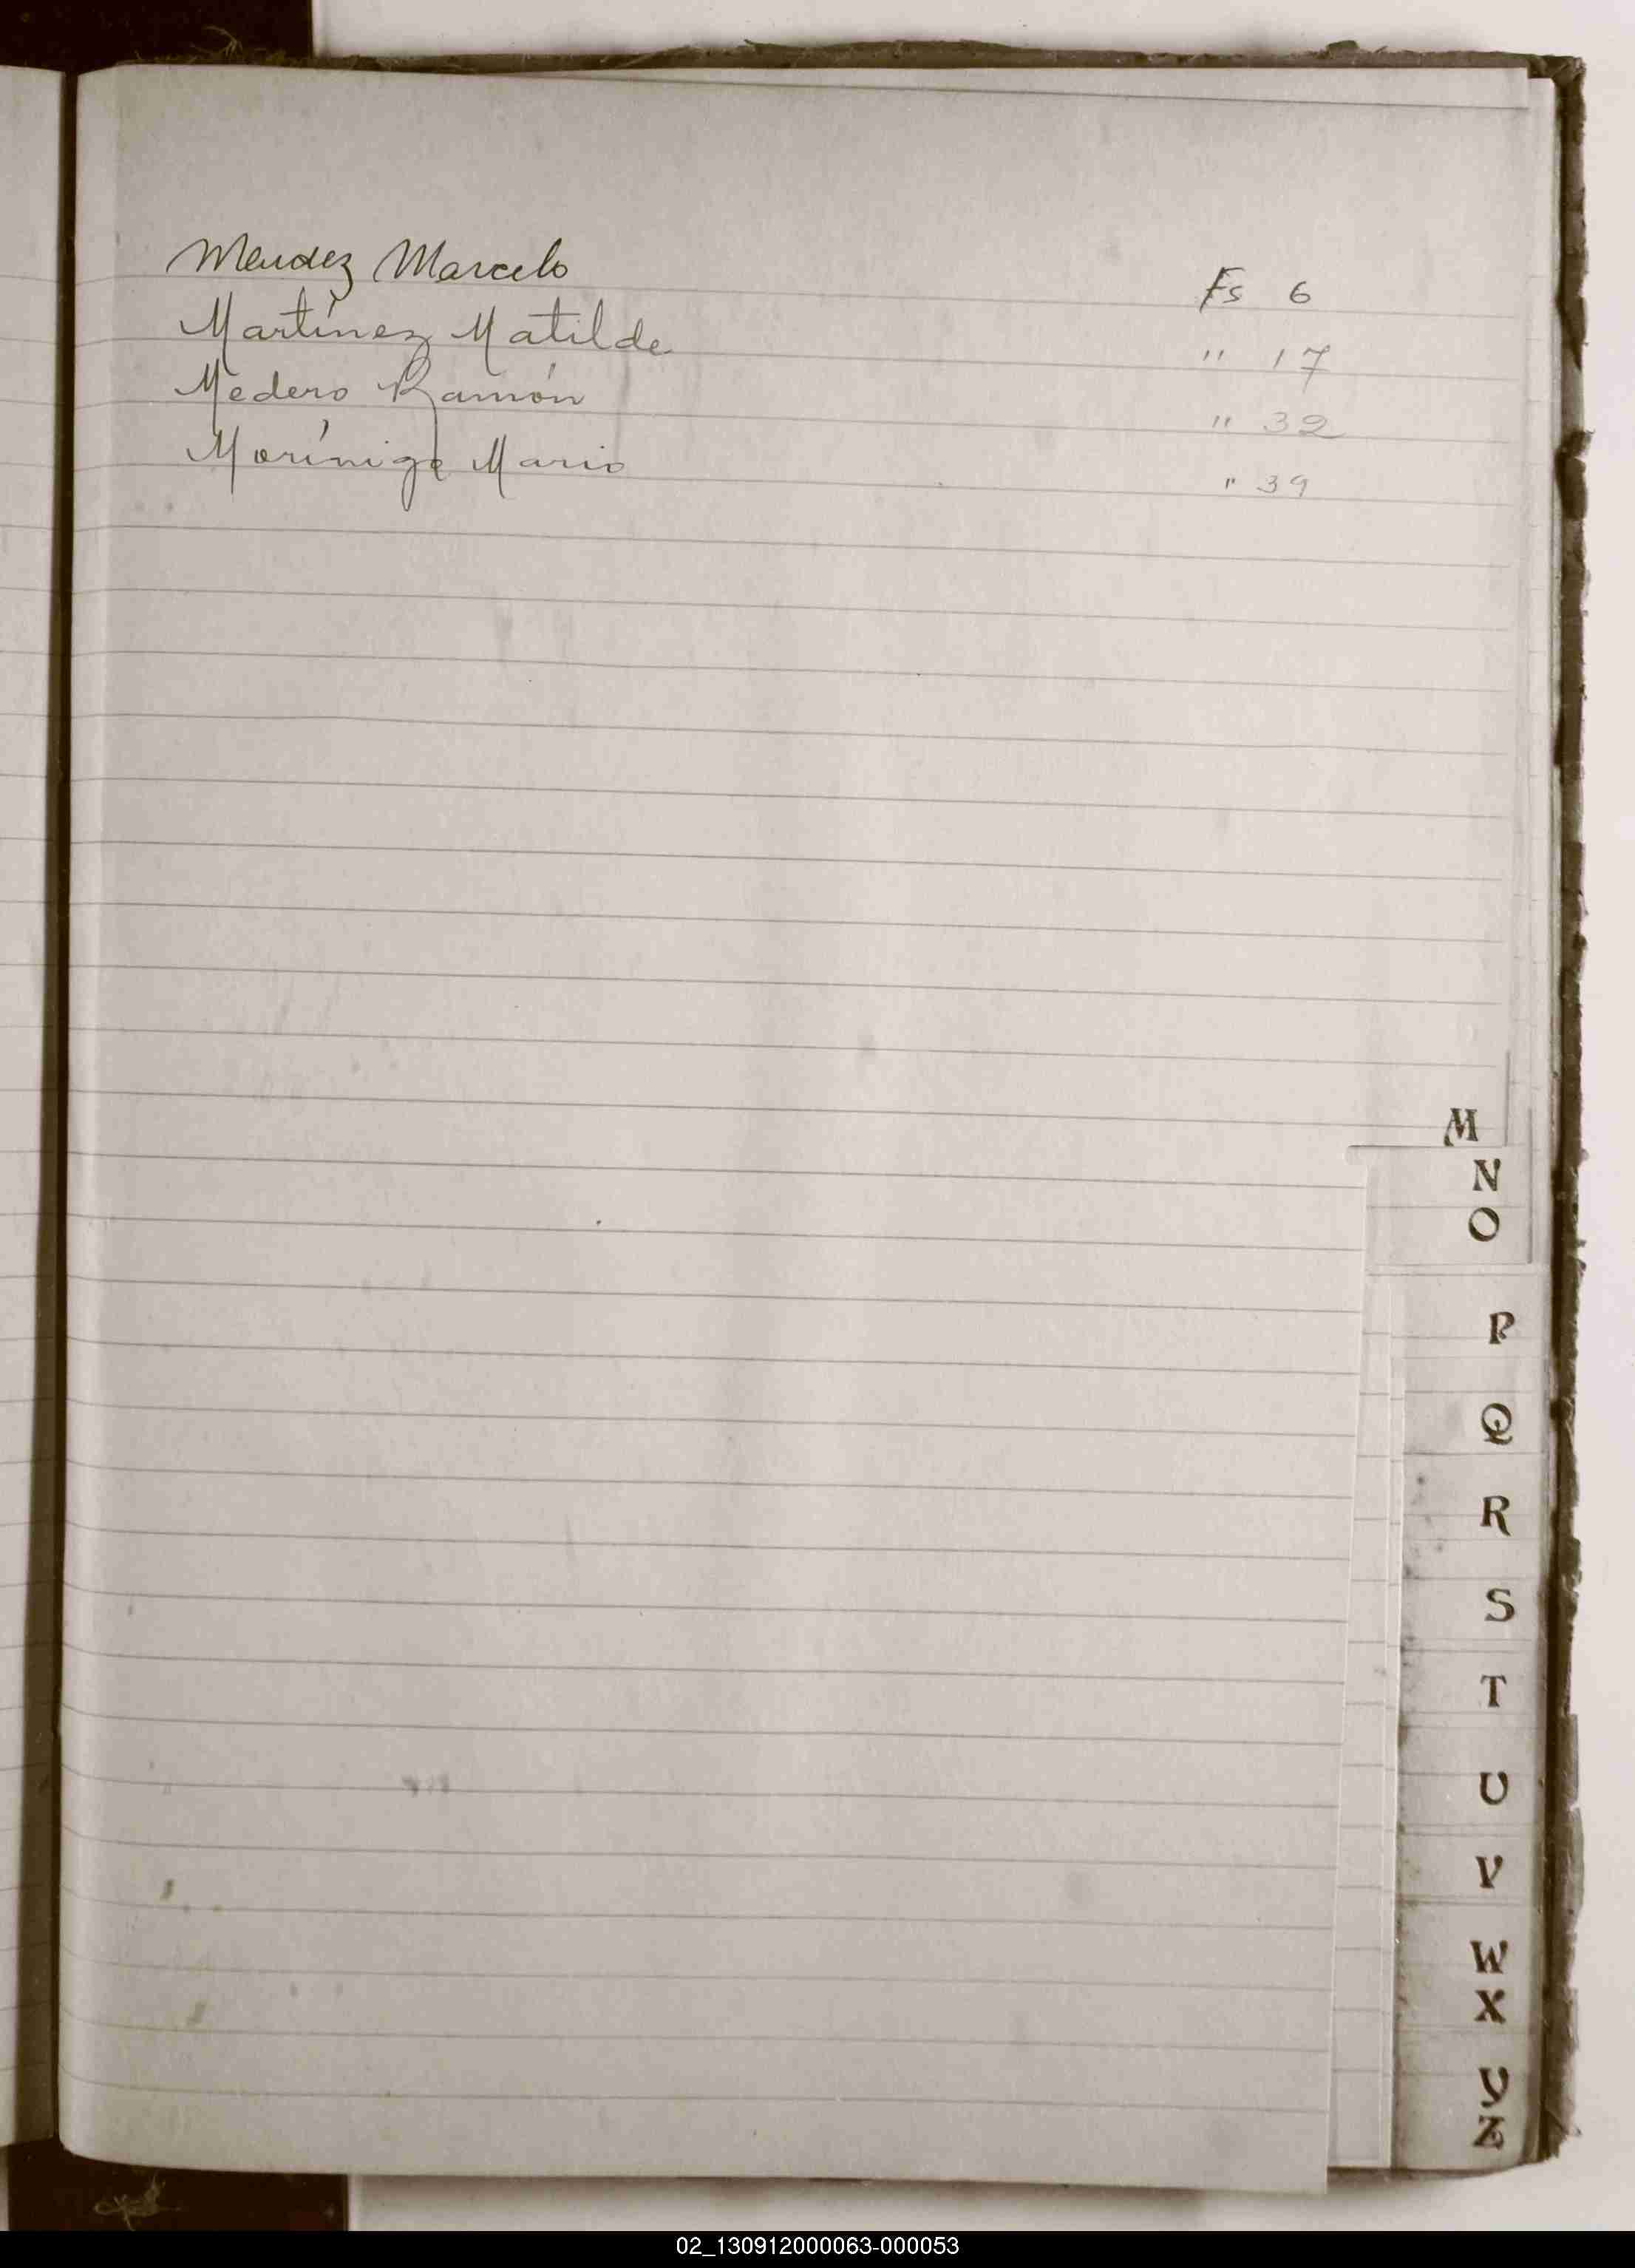 Mendez Marcelo Fs 6
Martínez Matilde " 17
Medero Ramón " 32
Morínigo Mario " 39
M
N
O
P
Q
R
S
T
U
V
W
X
Y
Z
02_130912000063-000053